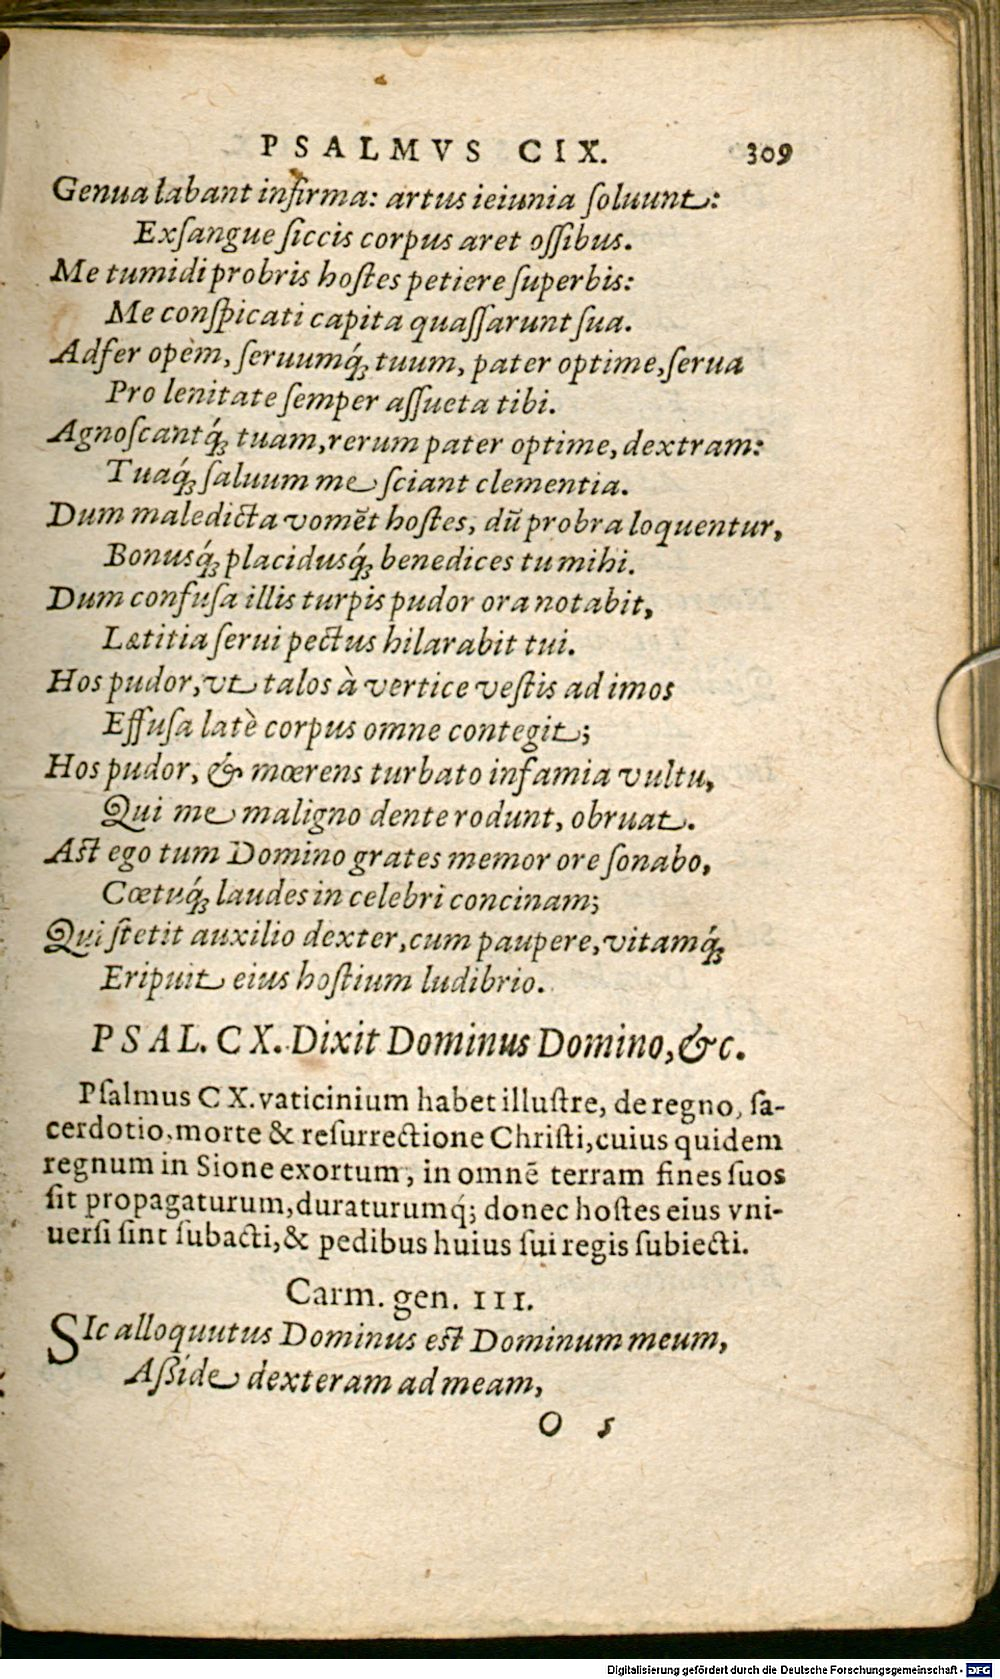 PSALMVS CIX. 309
Genua labant infirma: artus ieiunia ſoluunt:
Exſangue ſiccis corpus aret oſſibus.
Me tumidi probris hoſtes petiere ſuperbis:
Me conſpicati capita quaſſarunt ſua.
Adfer opem, ſeruumq́ꝫ tuum, pater optime, ſerua
Pro lenitate ſemper aſſueta tibi.
Agnoſcantq́ꝫ tuam, rerum pater optime, dextram:
Tuaq́ꝫ ſaluum me ſciant clementia.
Dum maledicta vomēt hoſtes, dū probra loquentur,
Bonusq́ꝫ placidusq́ꝫ benedices tu mihi.
Dum confuſa illis turpis pudor ora notabit,
Lætitia ſerui pectus hilarabit tui.
Hos pudor, vt talos à vertice veſtis ad imos
Effuſa latè corpus omne contegit;
Hos pudor, & mœrens turbato infamia vultu,
Qui me maligno dente rodunt, obruat.
Aſt ego tum Domino grates memor ore ſonabo,
Cœtuq́ꝫ laudes in celebri concinam;
Qui ſtetit auxilio dexter, cum paupere, vitamq́ꝫ
Eripuit eius hoſtium ludibrio.
PSAL. CX. Dixit Dominus Domino, &c.
Pſalmus CX. vaticinium habet illuſtre, de regno, ſa-
cerdotio, morte & reſurrectione Chriſti, cuius quidem
regnum in Sione exortum, in omnē terram fines ſuos
ſit propagaturum, duraturumq́; donec hoſtes eius vni-
uerſi ſint ſubacti, & pedibus huius ſui regis ſubiecti.
Carm. gen. III.
SIc alloquutus Dominus eſt Dominum meum,
Aßide dexteram ad meam,
O 5
Digitalisierung gefördert durch die Deutsche Forschungsgemeinschaft - DFG